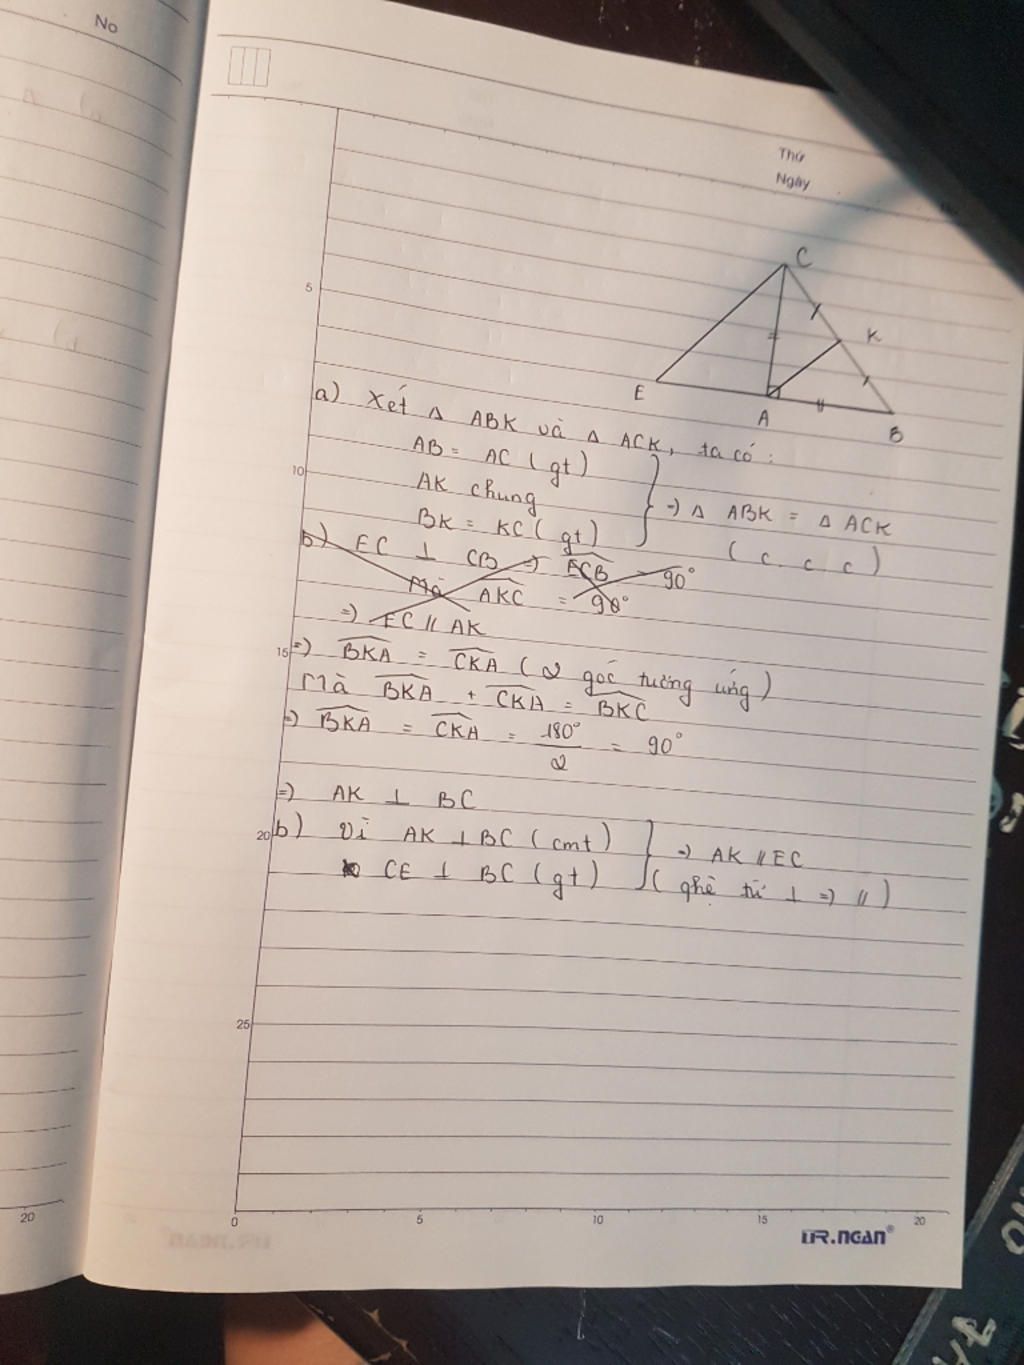 No
Thứ
Ngày
C
K
E
A
B
5
a) Xét Δ ABK và Δ ACK, ta có:
AB = AC (gt)
10
AK chung
⇒ Δ ABK = Δ ACK
BK = KC (gt)
(c.c.c)
b) EC ⊥ CB ⇒ ECB = 90°
Mà AKC = 90°
⇒ EC // AK
15
⇒ BKA = CKA (2 góc tương ứng)
Mà BKA + CKA = BKC
⇒ BKA = CKA = 180°/2 = 90°
⇒ AK ⊥ BC
20
b) Vì AK ⊥ BC (cmt)
⇒ AK // EC
CE ⊥ BC (gt)
(ghề từ ⊥ ⇒ //)
25
20
0 5 10 15 20
DR.NGAN®